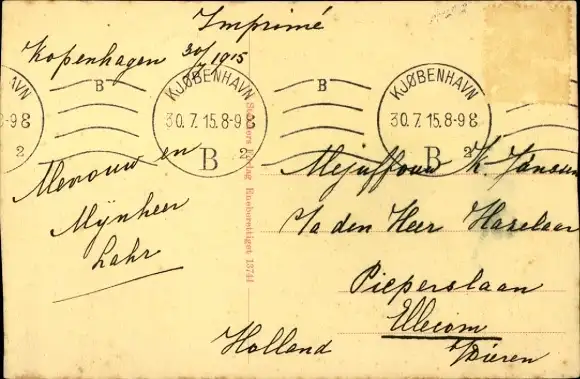 Imprimé
Kopenhagen 30/7 1915
AVN
8-98
2
B
KJØBENHAVN
30.7.15.8-98
B 2
B
KJØBENHAVN
30.7.15.8-98
B 2
Mevrouw en
Mijnheer
Lahr
Eneberettiget 13744
Mejuffouw K. Janssen
den Heer Haselaar
Pieperslaan
Ellecom
b/Dieren
Holland